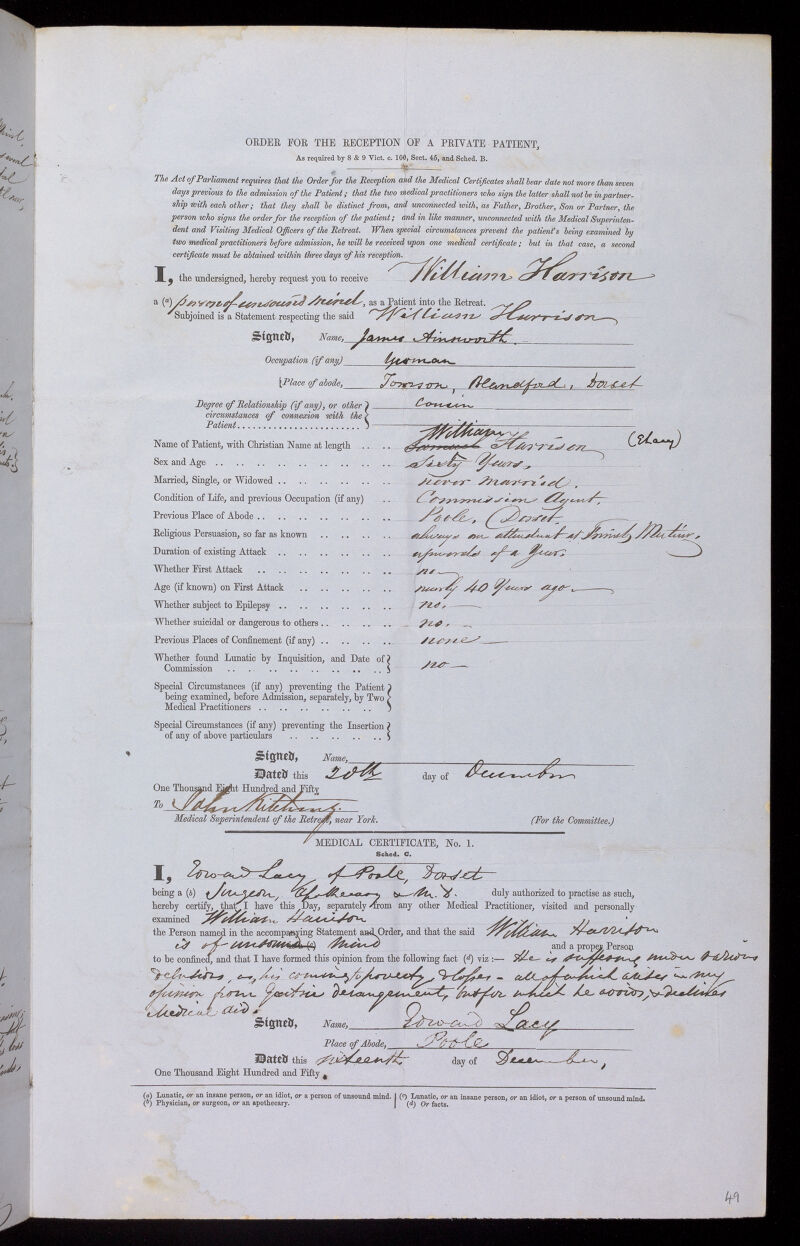 ORDER FOR THE RECEPTION OF A PRIVATE PATIENT,
As required by 8 & 9 Vict. c. 100, Sect. 45, and Sched. B.
The Act of Parliament requires that the Order for the Reception and the Medical Certificates shall bear date not more than seven
days previous to the admission of the Patient; that the two medical practitioners who sign the latter shall not be in partner-
ship with each other; that they shall be distinct from, and unconnected with, as Father, Brother, Son or Partner, the
person who signs the order for the reception of the patient; and in like manner, unconnected with the Medical Superinten-
dent and Visiting Medical Officers of the Retreat. When special circumstances prevent the patient's being examined by
two medical practitioners before admission, he will be received upon one medical certificate; but in that case, a second
certificate must be obtained within three days of his reception.
I, the undersigned, hereby request you to receive William Harrison
a (a) person of unsound mind, as a Patient into the Retreat.
Subjoined is a Statement respecting the said William Harrison
Signed, Name, James Ainsworth.
Occupation (if any) Yeoman
Place of abode, Blandford, Dorset
Degree of Relationship (if any), or other circumstances of connexion with the Patient cousin
Name of Patient, with Christian Name at length William Harrison
Sex and Age Sixty Years.
Married, Single, or Widowed never married.
Condition of Life, and previous Occupation (if any) Commission Agent.
Previous Place of Abode Poole, Dorset.
Religious Persuasion, so far as known always an attendant at Friends Meeting.
Duration of existing Attack upwards of a Year.
Whether First Attack no
Age (if known) on First Attack nearly 40 Years ago
Whether subject to Epilepsy no.
Whether suicidal or dangerous to others no.
Previous Places of Confinement (if any) none
Whether found Lunatic by Inquisition, and Date of Commission no
Special Circumstances (if any) preventing the Patient being examined, before Admission, separately, by Two Medical Practitioners
Special Circumstances (if any) preventing the Insertion of any of above particulars
Signed, Name,
Dated this 20th day of December
One Thousand Eight Hundred and Fifty
To John Kitching.
Medical Superintendent of the Retreat, near York. (For the Committee.)
MEDICAL CERTIFICATE, No. 1.
Sched. C.
I, Edward Lacy of Poole, Dorset
being a (b) Surgeon, Apothecary & M.D. duly authorized to practise as such,
hereby certify, that I have this Day, separately from any other Medical Practitioner, visited and personally
examined William Harrison
the Person named in the accompanying Statement and Order, and that the said William Harrison
is of unsound (c) mind and a proper Person
to be confined, and that I have formed this opinion from the following fact (d) viz:— He is suffering under various
delusions, as, his coming to poverty, & losses - all of which arises in my
opinion from Gastric derangement, & for which he avoids, & declines
Medical aid.
Signed, Name, Edward Lacy
Place of Abode, Poole
Dated this sixteenth day of December,
One Thousand Eight Hundred and Fifty.
(a) Lunatic, or an insane person, or an idiot, or a person of unsound mind.
(b) Physician, or surgeon, or an apothecary.
(c) Lunatic, or an insane person, or an idiot, or a person of unsound mind.
(d) Or facts.
49